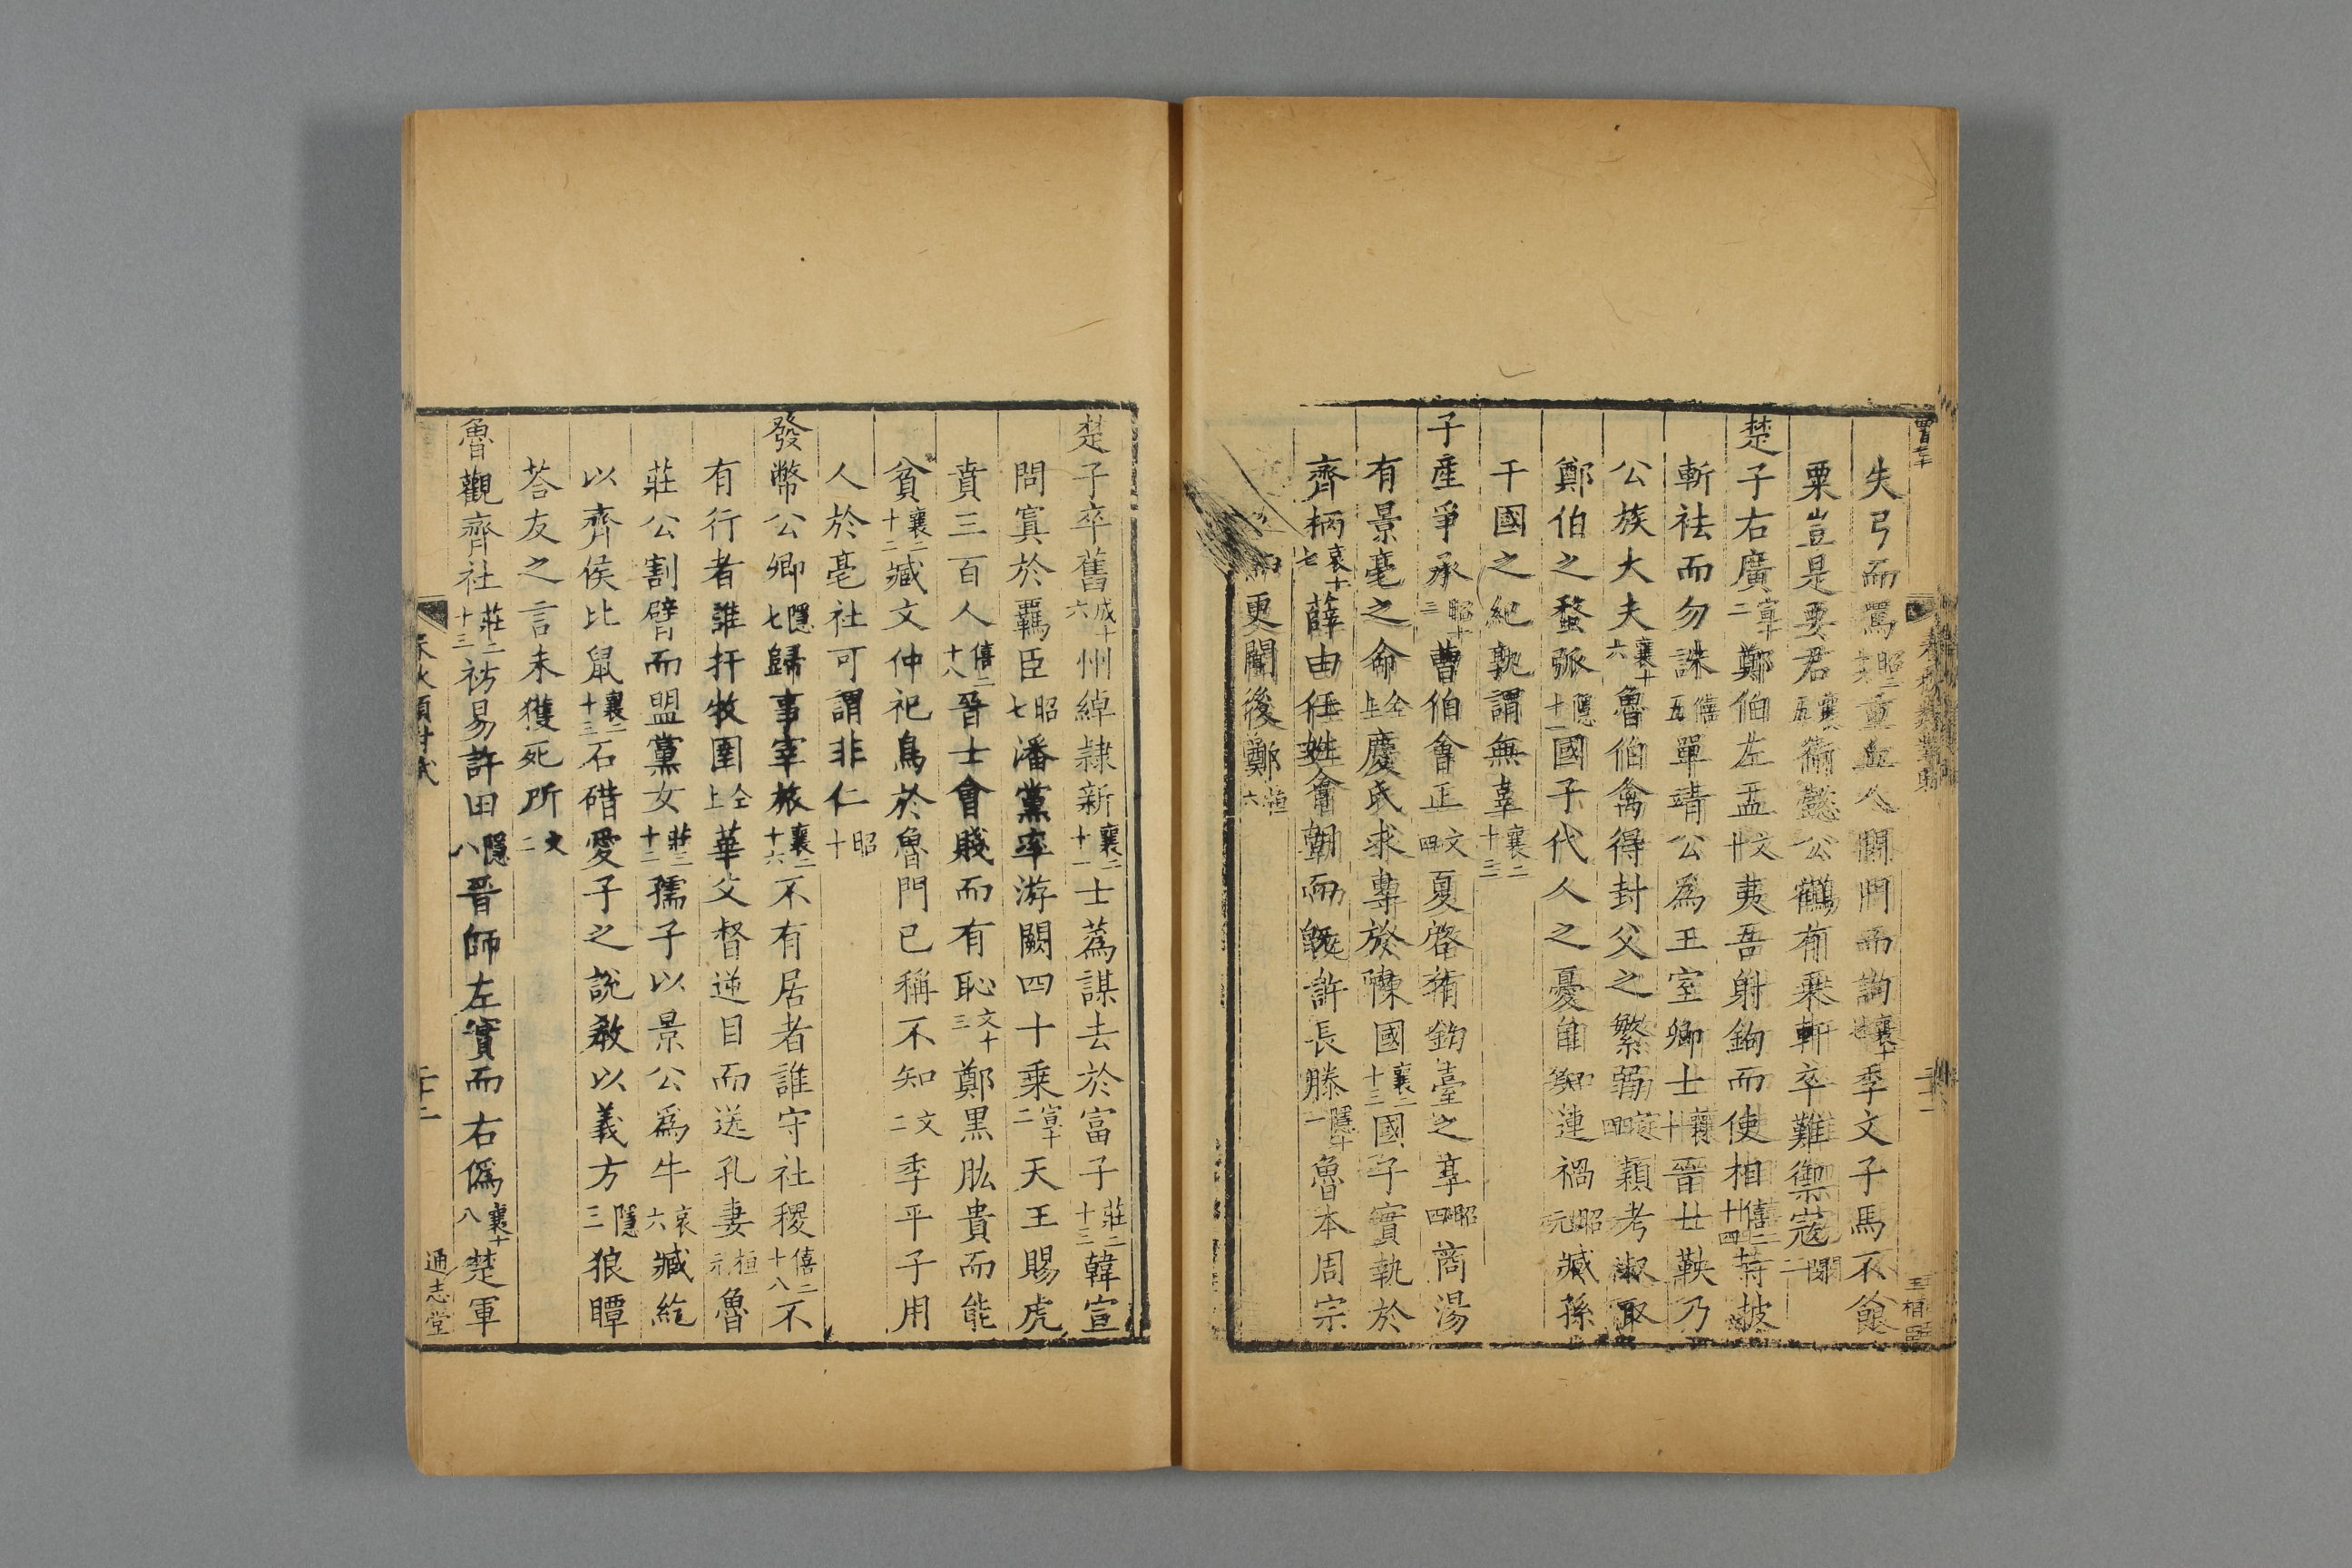 失弓而罵昭二十六重丘人閉門而訽襄十七季文子馬不餼
粟豈是要君襄五衛懿公鶴有乘軒卒難禦寇閔二
楚子右廣宣十二鄭伯左盂文十夷吾射鉤而使相僖二十四寺披
斬袪而勿誅僖五單靖公爲王室卿士襄十晉廿鞅乃
公族大夫襄十六魯伯禽得封父之繁弱定四潁考淑取
鄭伯之蝥弧隱十一國子代人之憂自知連禍昭元臧孫
干國之紀孰謂無辜襄二十三
子產爭承昭十三曹伯會正文四夏啓有鈞臺之享昭四商湯
有景亳之命仝上慶氏求專於陳國襄二十三國子實執於
齊柄哀十七薛由任姓會朝而旣許長滕隱十一魯本周宗
更闡後鄭桓六
楚子卒舊成十六州綽隷新襄二十一士蔿謀去於富子莊二十三韓宣
問寘於羈臣昭七潘黨率游闕四十乘宣十二天王賜虎
賁三百人僖二十八晉士會賤而有恥文十三鄭黑肱貴而能
貧襄二十二臧文仲祀鳥於魯門已稱不知文二季平子用
人於亳社可謂非仁昭十
發幣公卿隱七歸事宰旅襄二十六不有居者誰守社稷僖二十八不
有行者誰扞牧圉仝上華父督逆目而送孔妻桓元魯
莊公割臂而盟黨女莊三十二孺子以景公爲牛哀六臧紇
以齊侯比鼠襄二十三石碏愛子之說敎以義方隱三狼瞫
荅友之言未獲死所文二
魯觀齊社莊二十三祊易許田隱八晉師左實而右僞襄十八楚軍
通志堂